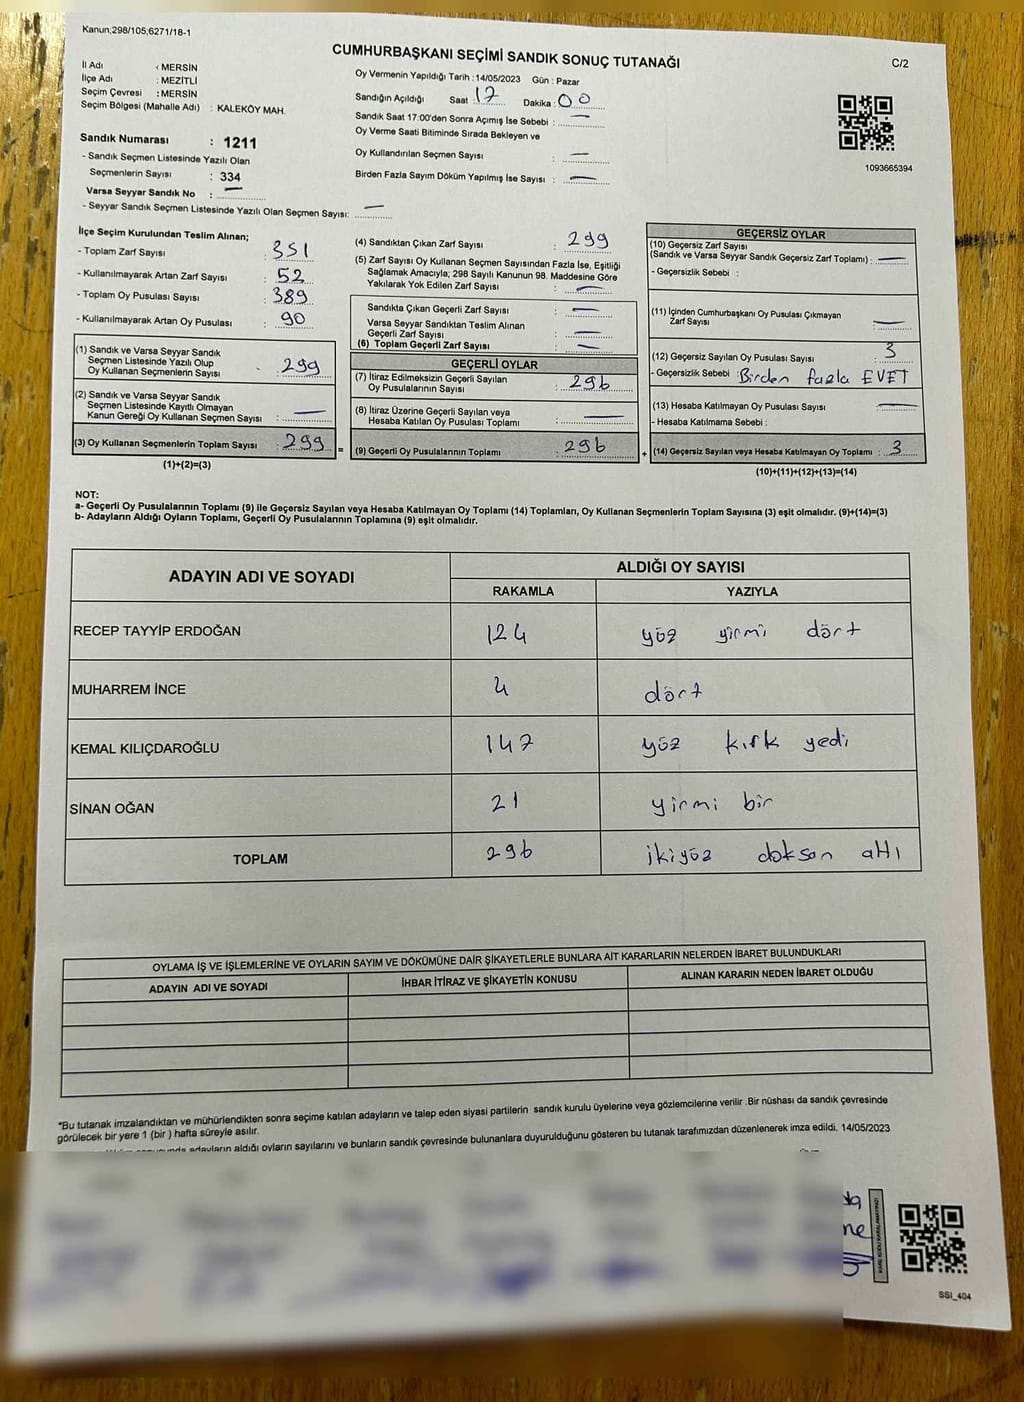 Kanun;298/105;6271/18-1
CUMHURBAŞKANI SEÇİMİ SANDIK SONUÇ TUTANAĞI
C/2
İl Adı : MERSİN
İlçe Adı : MEZİTLİ
Seçim Çevresi : MERSİN
Seçim Bölgesi (Mahalle Adı) : KALEKÖY MAH.
Sandık Numarası : 1211
- Sandık Seçmen Listesinde Yazılı Olan
Seçmenlerin Sayısı : 334
Varsa Seyyar Sandık No : —
- Seyyar Sandık Seçmen Listesinde Yazılı Olan Seçmen Sayısı: —
Oy Vermenin Yapıldığı Tarih : 14/05/2023 Gün : Pazar
Sandığın Açıldığı Saat : 17 Dakika : 00
Sandık Saat 17:00'den Sonra Açımış İse Sebebi : —
Oy Verme Saati Bitiminde Sırada Bekleyen ve
Oy Kullandırılan Seçmen Sayısı : —
Birden Fazla Sayım Döküm Yapılmış İse Sayısı : —
1093665394
İlçe Seçim Kurulundan Teslim Alınan;
- Toplam Zarf Sayısı : 351
- Kullanılmayarak Artan Zarf Sayısı : 52
- Toplam Oy Pusulası Sayısı : 389
- Kullanılmayarak Artan Oy Pusulası : 90
(1) Sandık ve Varsa Seyyar Sandık
Seçmen Listesinde Yazılı Olup
Oy Kullanan Seçmenlerin Sayısı : 299
(2) Sandık ve Varsa Seyyar Sandık
Seçmen Listesinde Kayıtlı Olmayan
Kanun Gereği Oy Kullanan Seçmen Sayısı : —
(3) Oy Kullanan Seçmenlerin Toplam Sayısı : 299
(1)+(2)=(3)
=
(4) Sandıktan Çıkan Zarf Sayısı : 299
(5) Zarf Sayısı Oy Kullanan Seçmen Sayısından Fazla İse, Eşitliği
Sağlamak Amacıyla; 298 Sayılı Kanunun 98. Maddesine Göre
Yakılarak Yok Edilen Zarf Sayısı : —
Sandıkta Çıkan Geçerli Zarf Sayısı : —
Varsa Seyyar Sandıktan Teslim Alınan
Geçerli Zarf Sayısı : —
(6) Toplam Geçerli Zarf Sayısı : —
GEÇERLİ OYLAR
(7) İtiraz Edilmeksizin Geçerli Sayılan
Oy Pusulalarının Sayısı : 296
(8) İtiraz Üzerine Geçerli Sayılan veya
Hesaba Katılan Oy Pusulası Toplamı : —
(9) Geçerli Oy Pusulalarının Toplamı : 296
+
GEÇERSİZ OYLAR
(10) Geçersiz Zarf Sayısı
(Sandık ve Varsa Seyyar Sandık Geçersiz Zarf Toplamı) : —
- Geçersizlik Sebebi :
(11) İçinden Cumhurbaşkanı Oy Pusulası Çıkmayan
Zarf Sayısı : —
(12) Geçersiz Sayılan Oy Pusulası Sayısı : 3
- Geçersizlik Sebebi : Birden fazla EVET
(13) Hesaba Katılmayan Oy Pusulası Sayısı : —
- Hesaba Katılmama Sebebi :
(14) Geçersiz Sayılan veya Hesaba Katılmayan Oy Toplamı : 3
(10)+(11)+(12)+(13)=(14)
NOT:
a- Geçerli Oy Pusulalarının Toplamı (9) ile Geçersiz Sayılan veya Hesaba Katılmayan Oy Toplamı (14) Toplamları, Oy Kullanan Seçmenlerin Toplam Sayısına (3) eşit olmalıdır. (9)+(14)=(3)
b- Adayların Aldığı Oyların Toplamı, Geçerli Oy Pusulalarının Toplamına (9) eşit olmalıdır.
ADAYIN ADI VE SOYADI
ALDIĞI OY SAYISI
RAKAMLA YAZIYLA
RECEP TAYYİP ERDOĞAN 124 yüz yirmi dört
MUHARREM İNCE 4 dört
KEMAL KILIÇDAROĞLU 147 yüz kırk yedi
SİNAN OĞAN 21 yirmi bir
TOPLAM 296 ikiyüz doksan altı
OYLAMA İŞ VE İŞLEMLERİNE VE OYLARIN SAYIM VE DÖKÜMÜNE DAİR ŞİKAYETLERLE BUNLARA AİT KARARLARIN NELERDEN İBARET BULUNDUKLARI
ADAYIN ADI VE SOYADI İHBAR İTİRAZ VE ŞİKAYETİN KONUSU ALINAN KARARIN NEDEN İBARET OLDUĞU
*Bu tutanak imzalandıktan ve mühürlendikten sonra seçime katılan adayların ve talep eden siyasi partilerin sandık kurulu üyelerine veya gözlemcilerine verilir .Bir nüshası da sandık çevresinde
görülecek bir yere 1 (bir ) hafta süreyle asılır.
adayların aldığı oyların sayılarını ve bunların sandık çevresinde bulunanlara duyurulduğunu gösteren bu tutanak tarafımızdan düzenlenerek imza edildi. 14/05/2023
SSI_404